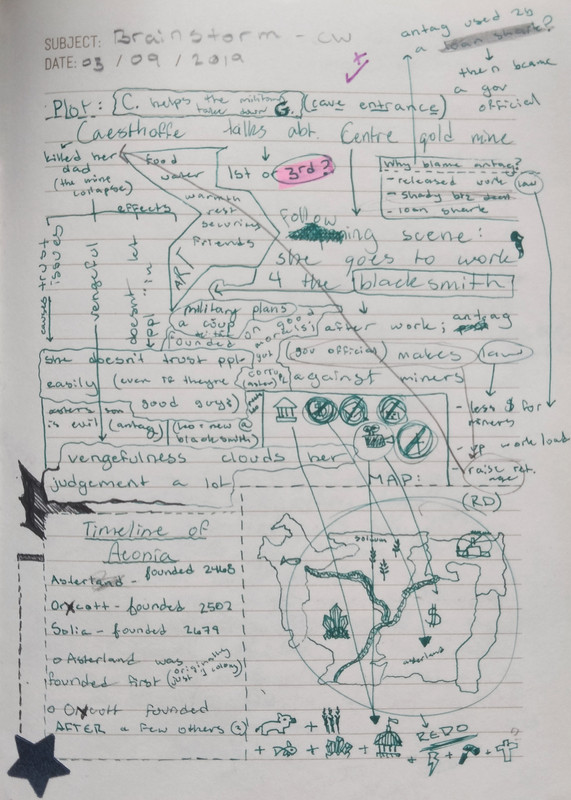 SUBJECT: Brainstorm - cw
DATE: 03 / 09 / 2019
antag used 2b
a loan shark?
then became
a gov
official
Plot: C. helps the military
take down G. (cave entrance)
Caesthoffe talks abt. Centre gold mine
killed her
dad
(the mine
collapse)
food
water
warmth
rest
security
Friends
ART
1st or 3rd?
Why blame antag?
- released work law
- shady biz deal
- loan shark
effects
causes trust
issues
vengeful
doesn't let
ppl in
Follow
ing scene:
she goes to work
4 the blacksmith
military plans
a coup
founded on good
morals
but
after work; antag
(gov official) makes law
against miners
she doesn't trust ppl
easily (even if theyre
good guys)
is evil (antag)
blacksmith)
- less $ for
miners
- up work load
- raise ret.
age
(RD)
vengefulness clouds her
judgement a lot
MAP:
Timeline of
Aconia
Asterland - founded 2468
Orxcott - founded 2502
Solia - founded 2479
o Asterland was originally
founded first (just 1 colony)
o Orxcott founded
AFTER a few others (2)
solium
$
asterland
REDO